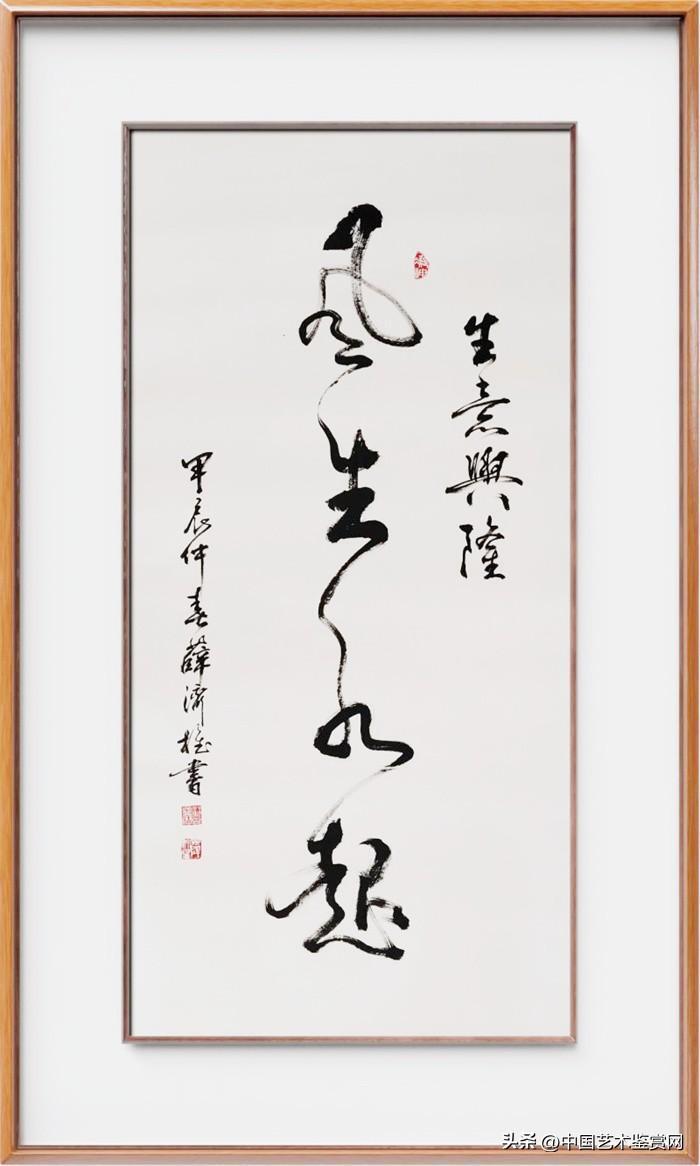 生意興隆
風生水起
甲辰仲春薛濟書
头条 @中国艺术鉴赏网